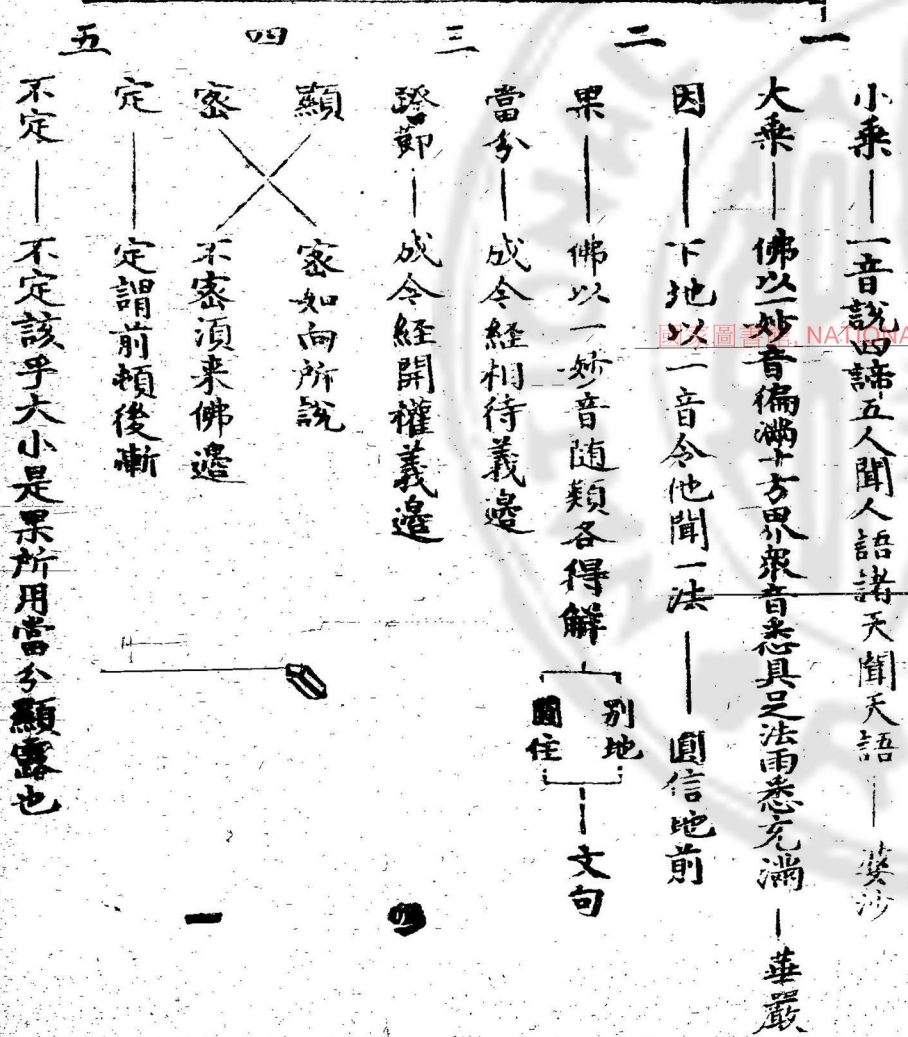 一
小乘 一音說四諦五人聞人語諸天聞天語 婆沙
大乘 佛以一妙音徧滿十方界衆音悉具足法雨悉充滿 華嚴
二
因 下地以一音令他聞一法 圓信地前
果 佛以一妙音随類各得解 別地 圓住 文句
三
當分 成今経相待義邊
跨節 成今経開權義邊
四
顯 不密須来佛邊
密 密如向所説
五
定 定謂前頓後漸
不定 不定該乎大小是果所用當分顯露也
四
一
國家圖書館, NATIONA